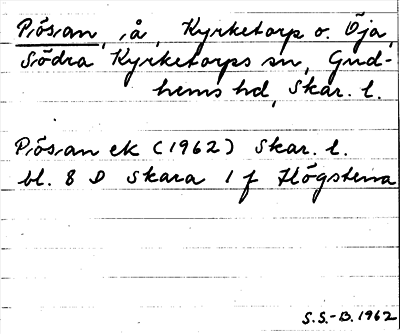 Pösan, å, Kyrketorp o. Öja,
Södra Kyrketorps sn, Gud-
hems hd, Skar. l.
Pösan ek (1962) Skar. l.
bl. 8 D Skara 1 f Högstena
S.S.-B. 1962